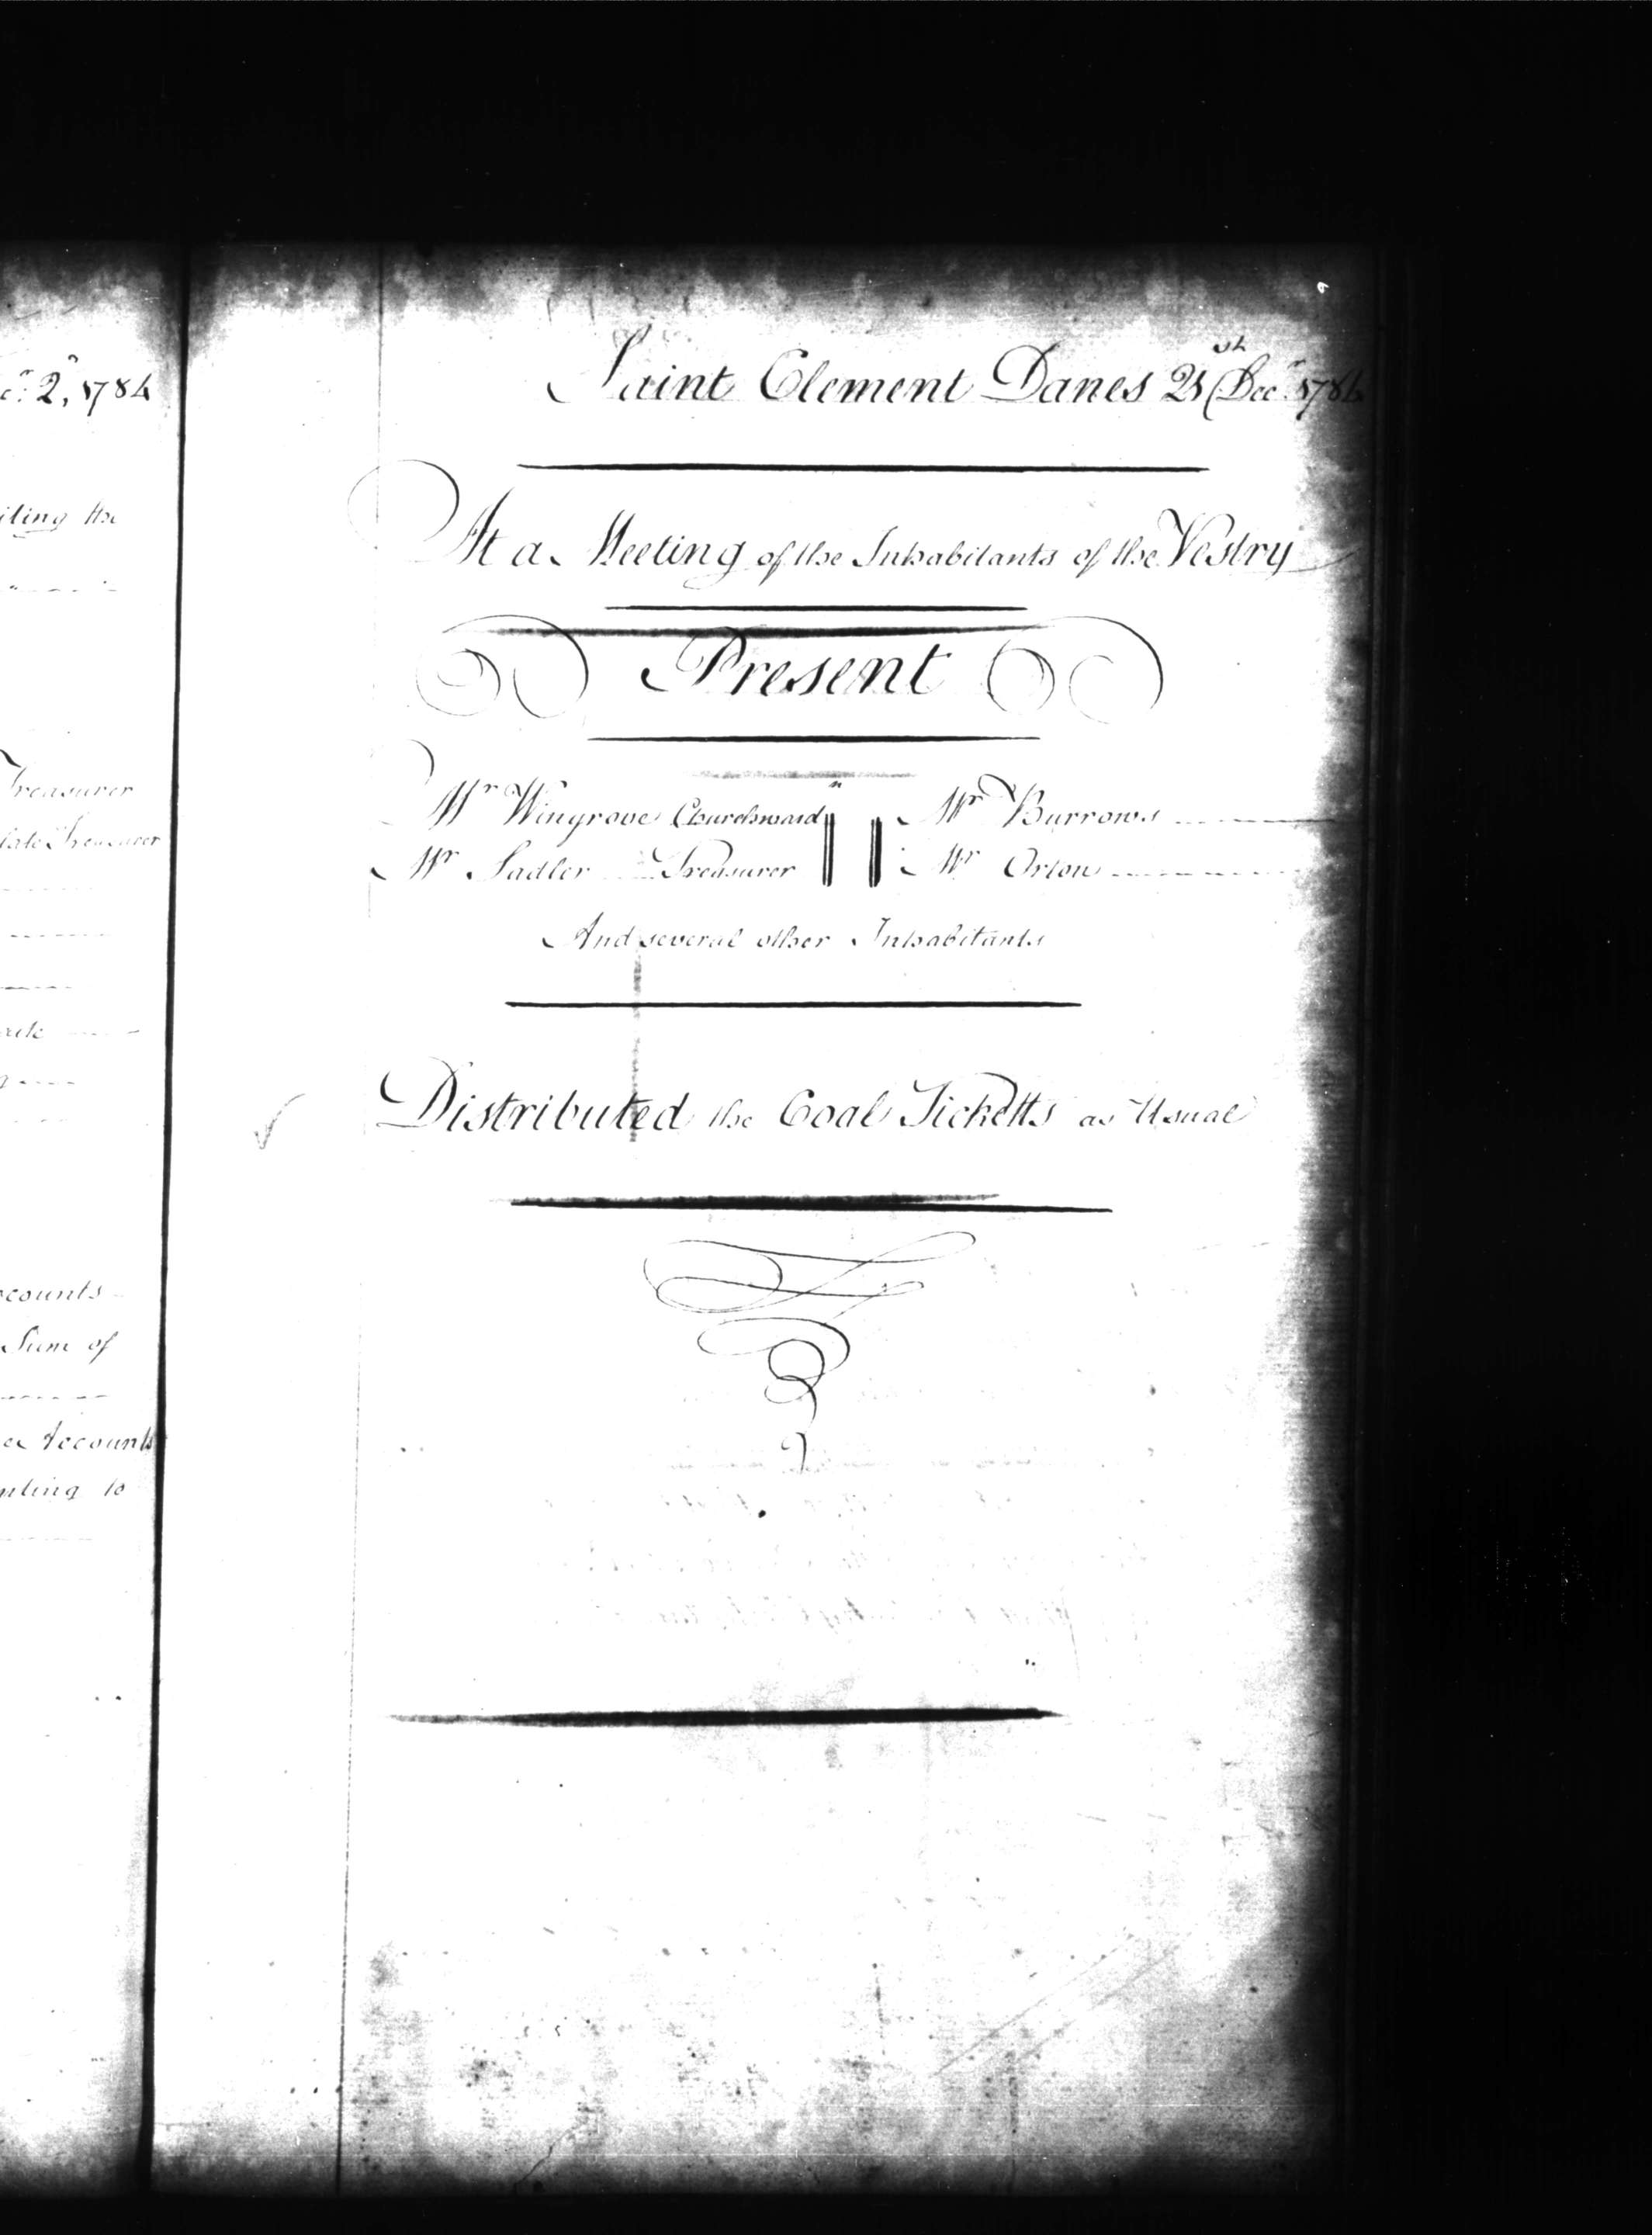 c.r 2d, 1784
iting the
Treasurer
late Treasurer
counts
Sum of
Accounts
nting to
Saint Clement Danes 21st Decr. 1784
At a Meeting of the Inhabitants of the Vestry
Present
Mr Wingrove Churchwardn Mr Burrows
Mr Sadler Treasurer Mr Orton
And several other Inhabitants
Distributed the Coal Ticketts as Usual